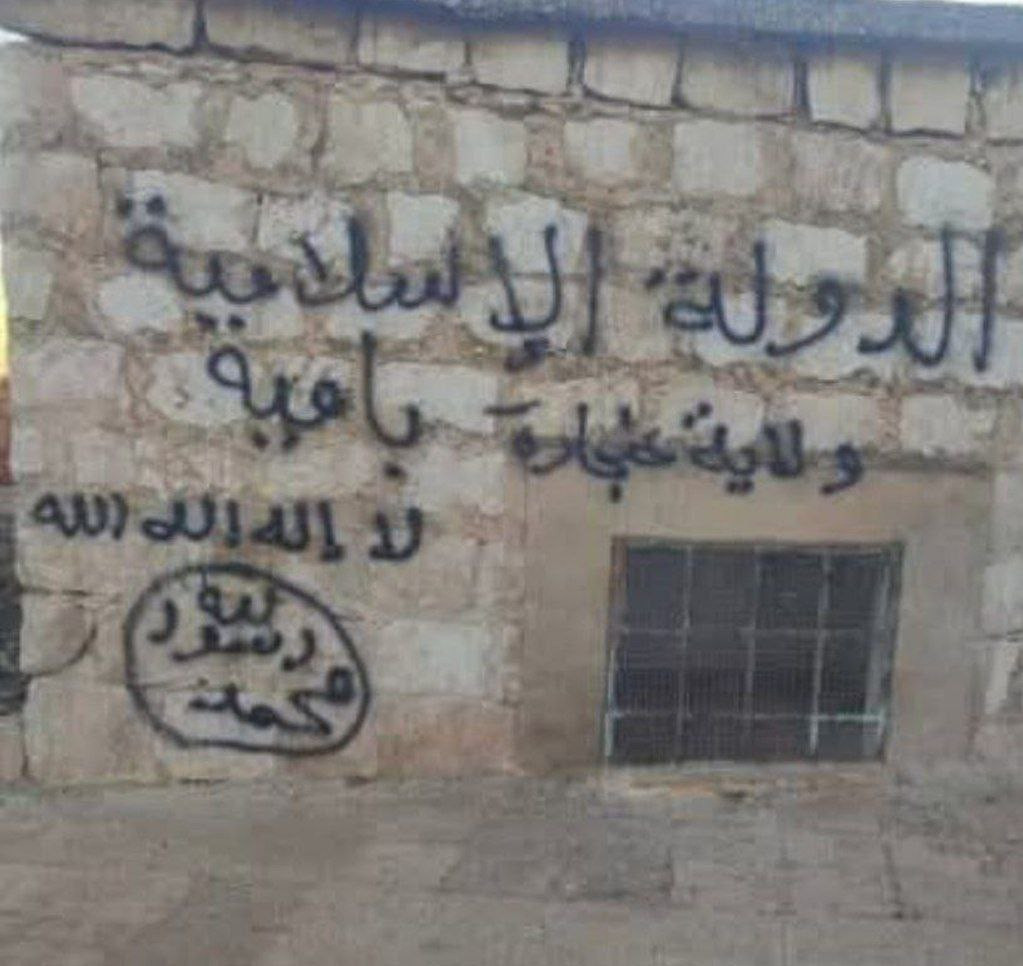 الدولة الإسلامية
باقية
ولاية
لا إله إلا الله
الله
رسول
محمد